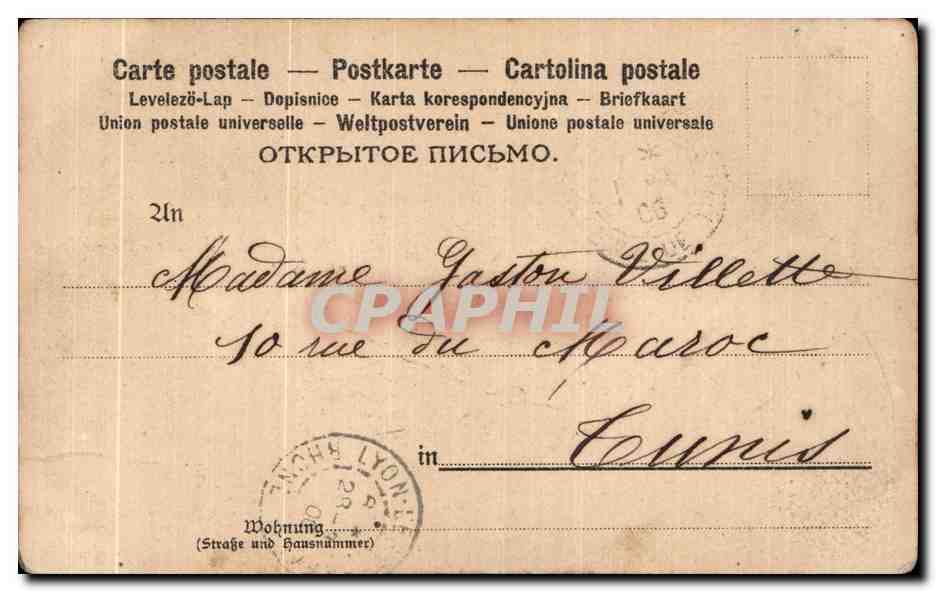 Carte postale — Postkarte — Cartolina postale
Levelező-Lap — Dopisnice — Karta korespondencyjna — Briefkaart
Union postale universelle — Weltpostverein — Unione postale universale
ОТКРЫТОЕ ПИСЬМО.
An
Madame Gaston Villette
CPAPHIL
10 rue du Maroc
in Tunis
LYON
RHONE
Wohnung
(Straße und Hausnummer)